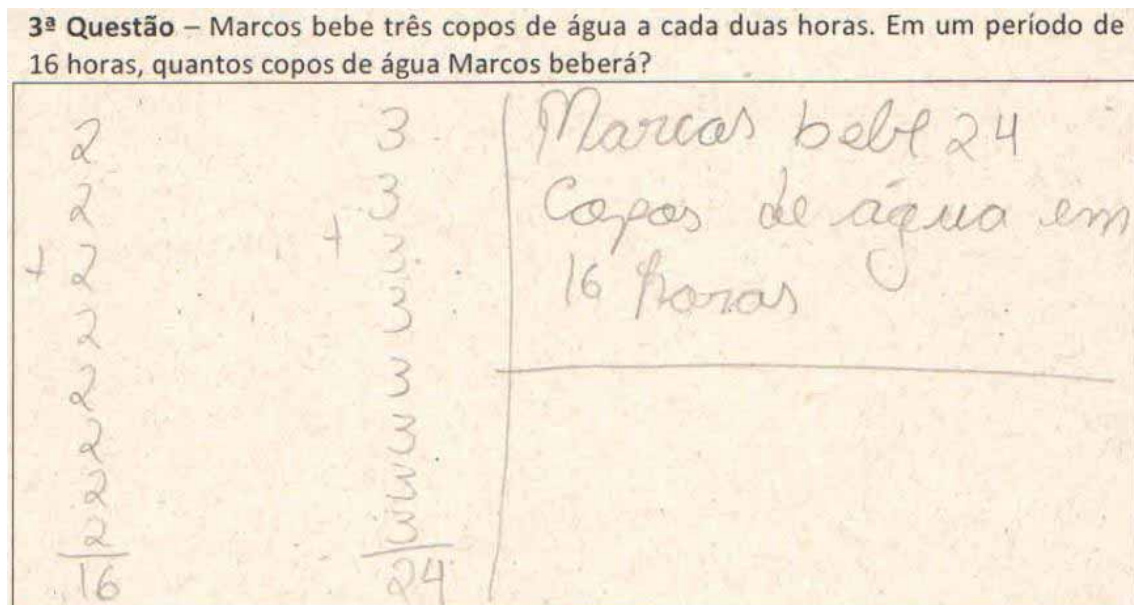 3ª Questão – Marcos bebe três copos de água a cada duas horas. Em um período de
16 horas, quantos copos de água Marcos beberá?
2
2
+ 2
2
2
2
2
2
16
3
3
+ 3
3
3
3
3
3
24
Marcos bebe 24
Copos de água em
16 horas